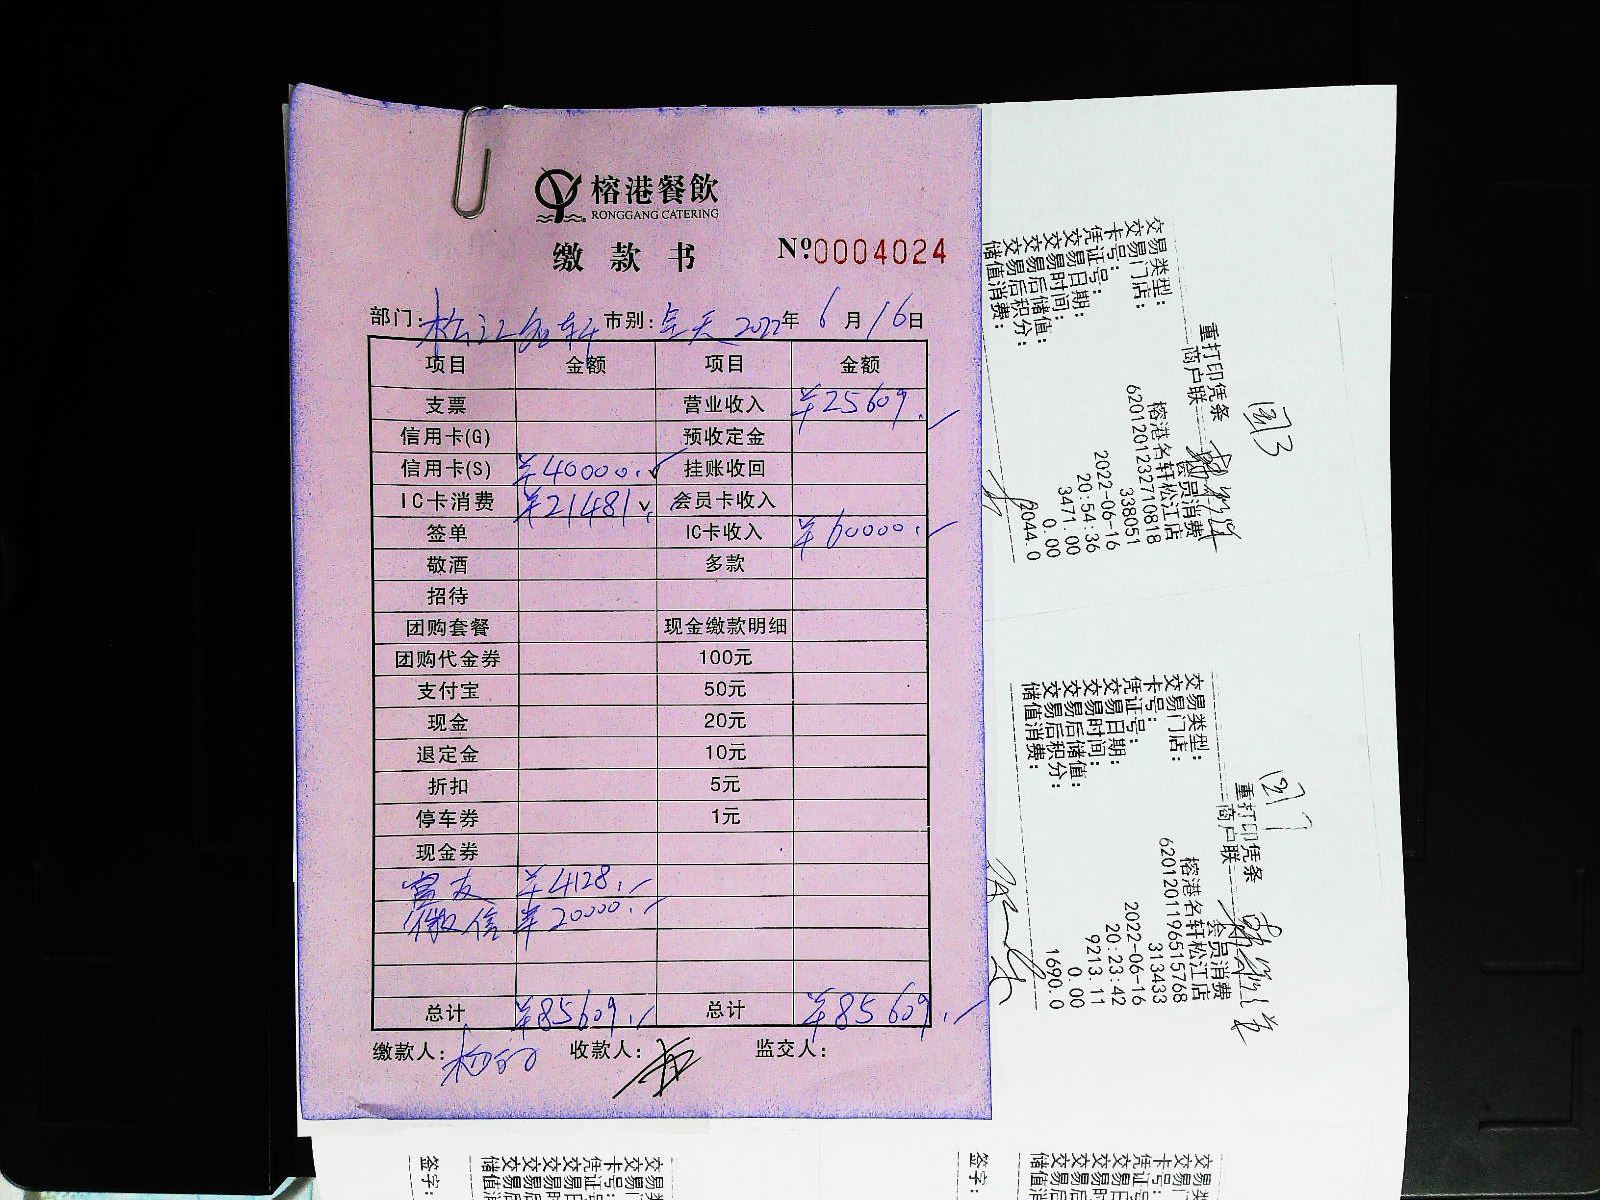 榕港餐飲
RONGGANG CATERING
缴款书 №0004024
部门: 松江名轩 市别: 全天 2022年 6月 16日
项目 金额 项目 金额
支票 营业收入 ¥25609.-
信用卡(G) 预收定金
信用卡(S) ¥40000. 挂账收回
IC卡消费 ¥21481 会员卡收入
签单 IC卡收入 ¥60000.-
敬酒 多款
招待
团购套餐 现金缴款明细
团购代金券 100元
支付宝 50元
现金 20元
退定金 10元
折扣 5元
停车券 1元
现金券
¥4128.-
微信 ¥20000.-
总计 ¥85609.- 总计 ¥85609.-
缴款人: 收款人: 监交人:
重打印凭条
商户联
交易类型: 会员消费
交易门店: 榕港名轩松江店
卡号: 6201201232710818
凭证号: 338051
交易日期: 2022-06-16
交易时间: 20:54:36
交易后储值: 3471.00
交易后积分: 0.00
储值消费: 2044.0
重打印凭条
商户联
交易类型: 会员消费
交易门店: 榕港名轩松江店
卡号: 6201201196515768
凭证号: 313433
交易日期: 2022-06-16
交易时间: 20:23:42
交易后储值: 9213.11
交易后积分: 0.00
储值消费: 1690.0
签字:
签字: